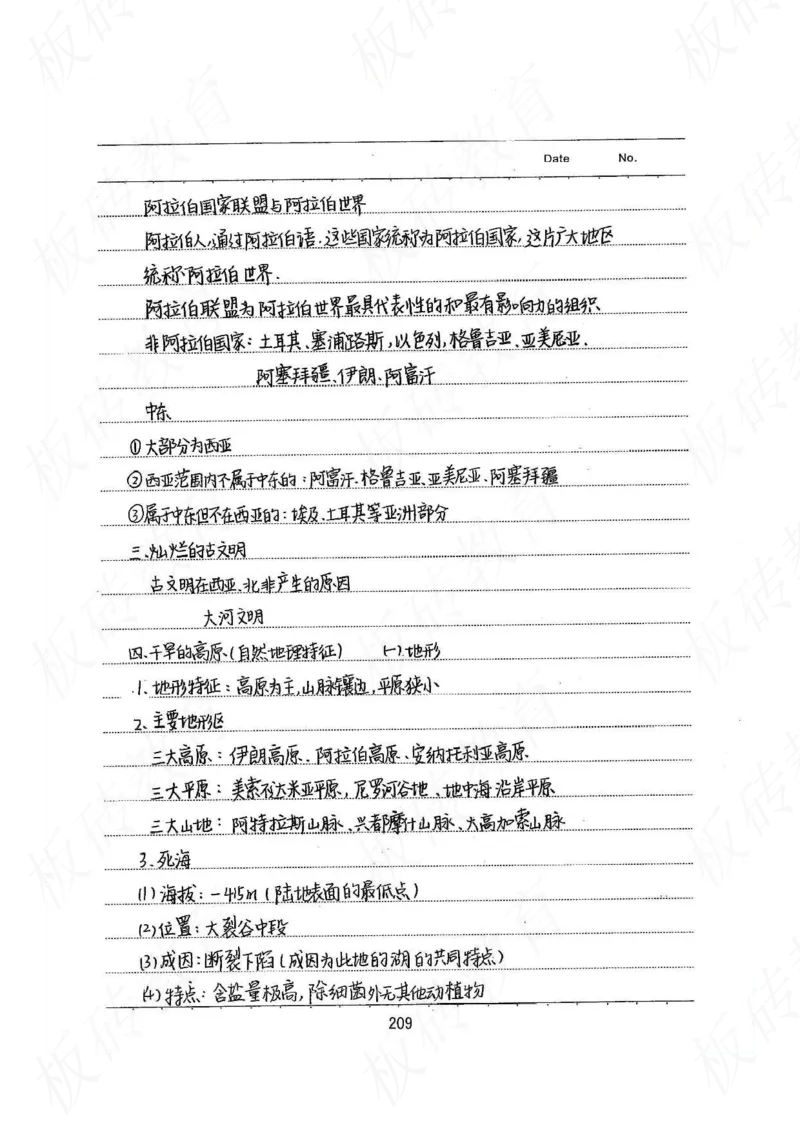 Date No.
阿拉伯国家联盟与阿拉伯世界
阿拉伯人,通过阿拉伯语.这些国家统称为阿拉伯国家,这片广大地区
统称阿拉伯世界.
阿拉伯联盟为阿拉伯世界最具代表性的和最有影响力的组织
非阿拉伯国家:土耳其、塞浦路斯,以色列,格鲁吉亚、亚美尼亚.
阿塞拜疆、伊朗、阿富汗
中东
①大部分为西亚
②西亚范围内不属于中东的:阿富汗、格鲁吉亚、亚美尼亚、阿塞拜疆
③属于中东但不在西亚的:埃及、土耳其等亚洲部分
三、灿烂的古文明
古文明在西亚、北非产生的原因
大河文明
四、干旱的高原(自然地理特征) (一).地形
1. 地形特征:高原为主,山脉镶边,平原狭小
2、主要地形区
三大高原:伊朗高原、阿拉伯高原、安纳托利亚高原
三大平原:美索不达米亚平原,尼罗河谷地、地中海沿岸平原
三大山地:阿特拉斯山脉、兴都摩什山脉、大高加索山脉
3、死海
(1)海拔:-415m(陆地表面的最低点)
(2)位置:大裂谷中段
(3)成因:断裂下陷(成因为此地的湖的共同特点)
(4)特点:含盐量极高,除细菌外无其他动植物
209
板砖教育